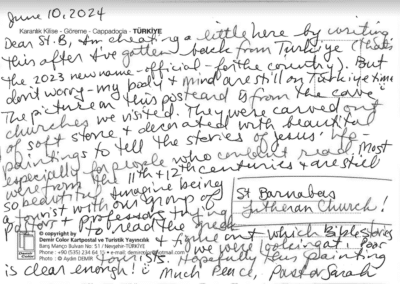 June 10, 2024
Karanlık Kilise - Göreme - Cappadocia - TÜRKİYE
Dear St. B, I'm cheating a little here by writing
this after I've gotten back from Türkiye (that's
the 2023 new name - official - for the country). But
don't worry - my body & mind are still on Türkiye time
The picture on this postcard is from the cave
churches we visited. They were carved out
of soft stone & decorated with beautiful
paintings to tell the stories of Jesus' life -
especially for people who couldn't read. Most
were from the 11th & 12th centuries & are still
so beautiful. Imagine being
a tourist with our group of
pastors & professors trying
to read the
& figure out which Bible stories
we were looking at! Poor
tourists. Hopefully this painting
is clear enough! :) Much Peace, Pastor Sarah
St Barnabas
Lutheran Church!
© copyright by
Demir Color Kartpostal ve Turistik Yayıncılık
Barış Manço Bulvarı No. 51 / Nevşehir-TÜRKİYE
Photo : © Aydın DEMİR